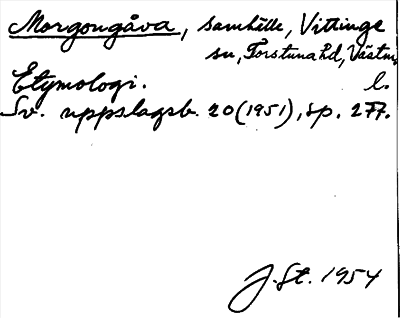 Morgongåva, samhälle, Vittinge
sn, Torstuna hd, Västm.
l.
Etymologi.
Sv. uppslagsb. 20 (1951), sp. 277.
J. St. 1954